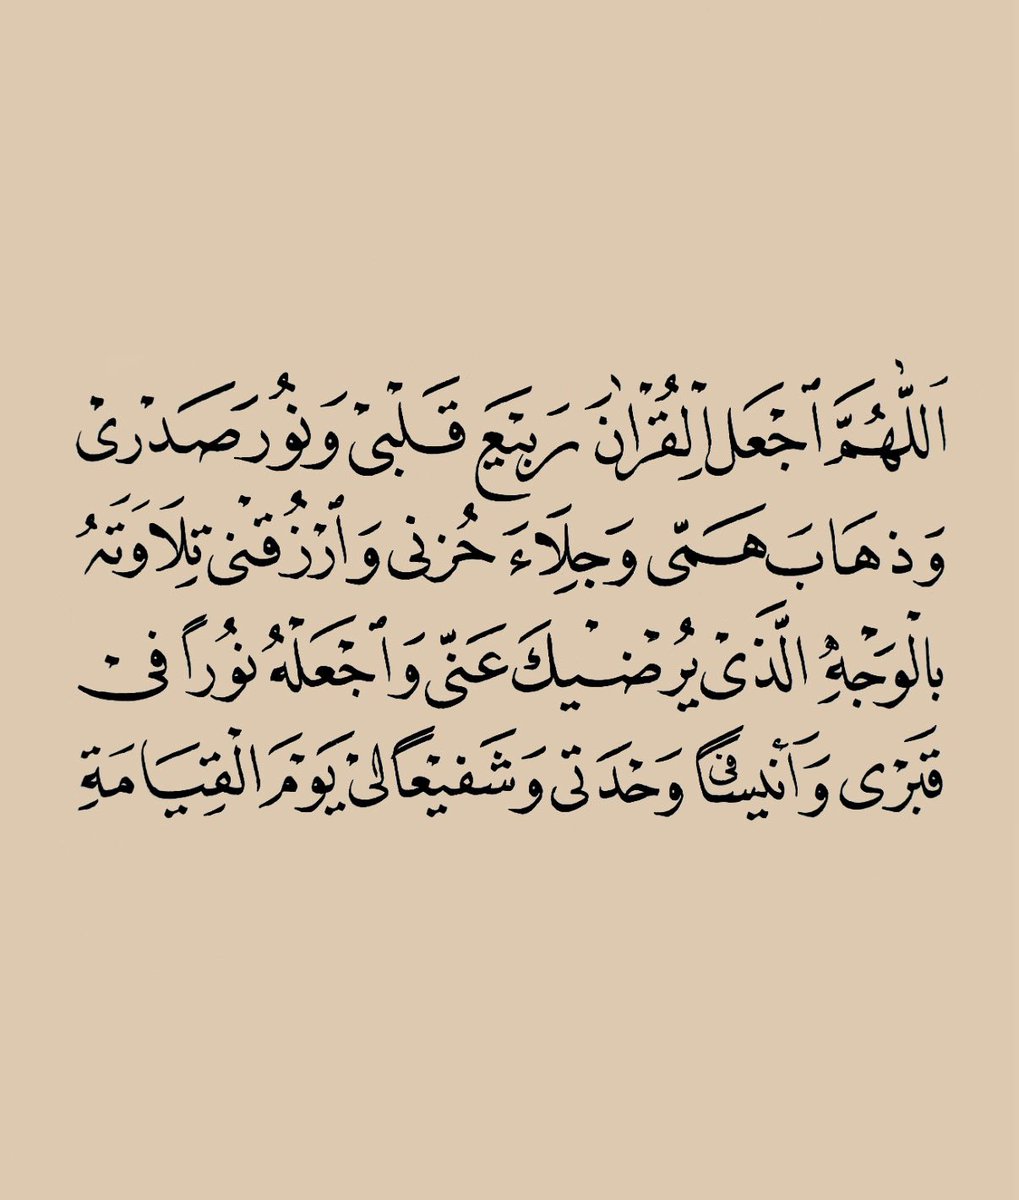 اَللّٰهُمَّ ٱجْعَلِ الْقُرْاٰنَ رَبِيْعَ قَلْبِىْ وَنُورَ صَدْرِىْ
وَذِهَابَ هَمّى وَجِلَاءَ حُزنى وَٱرْزُقْنى تِلَاوَتَهُ
بِالْوَجْهِ الَّذَىْ يُرْضْيكَ عَنّى وَٱجْعَلْهُ نُورًا فىْ
قَبَرْى وَأَنيسًا فى وَحْدَتى وَشَفيْعًا لىْ يَوْمَ الْقِيَامَةِ